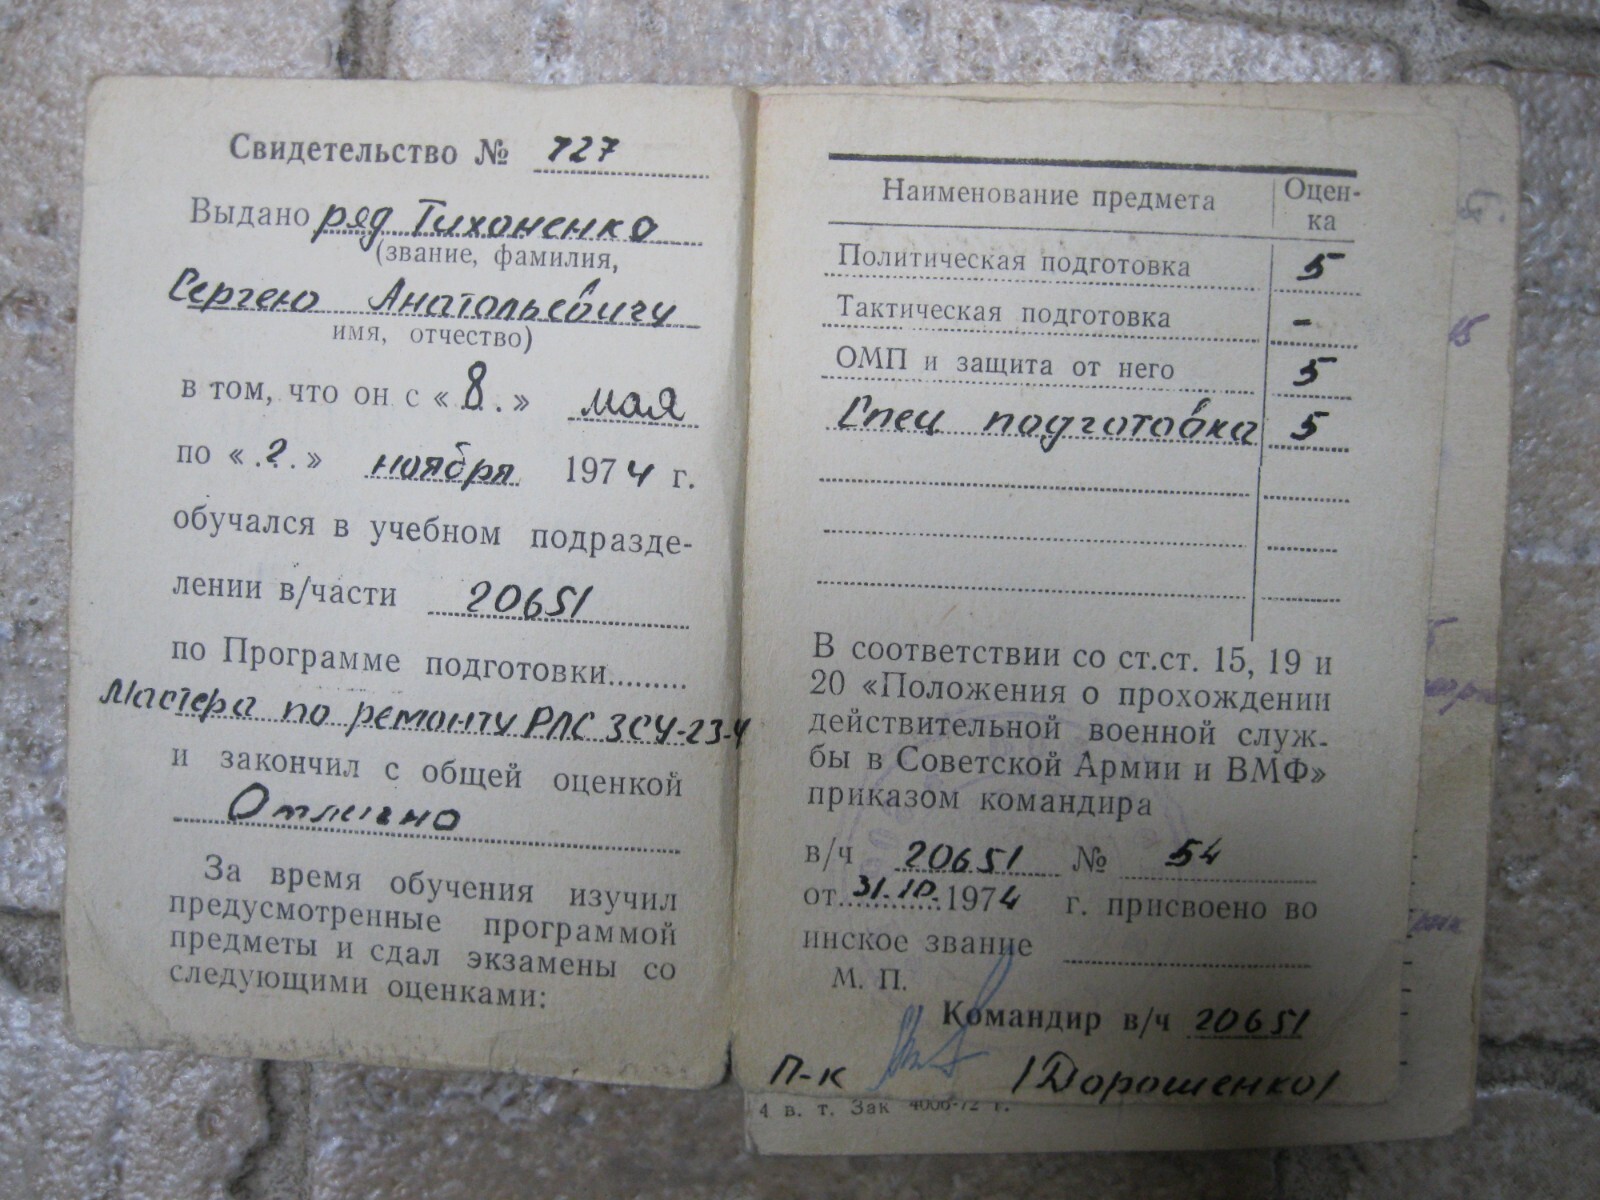 Свидетельство № 727
Выдано ряд Тихоненко
(звание, фамилия,
Сергею Анатольевичу
имя, отчество)
в том, что он с «8.» мая
по «.2.» ноября 1974 г.
обучался в учебном подразде-
лении в/части 20651
по Программе подготовки.........
Мастера по ремонту РЛС ЗСУ-23-4
и закончил с общей оценкой
Отлично
За время обучения изучил
предусмотренные программой
предметы и сдал экзамены со
следующими оценками:
Наименование предмета Оцен-
ка
Политическая подготовка 5
Тактическая подготовка -
ОМП и защита от него 5
Спец подготовка 5
В соответствии со ст.ст. 15, 19 и
20 «Положения о прохождении
действительной военной служ-
бы в Советской Армии и ВМФ»
приказом командира
в/ч 20651 № 54
от 31.10.1974 г. присвоено во
инское звание
М. П.
Командир в/ч 20651
П-к /Дорошенко/
4 в. т. Зак 4006-72 г.